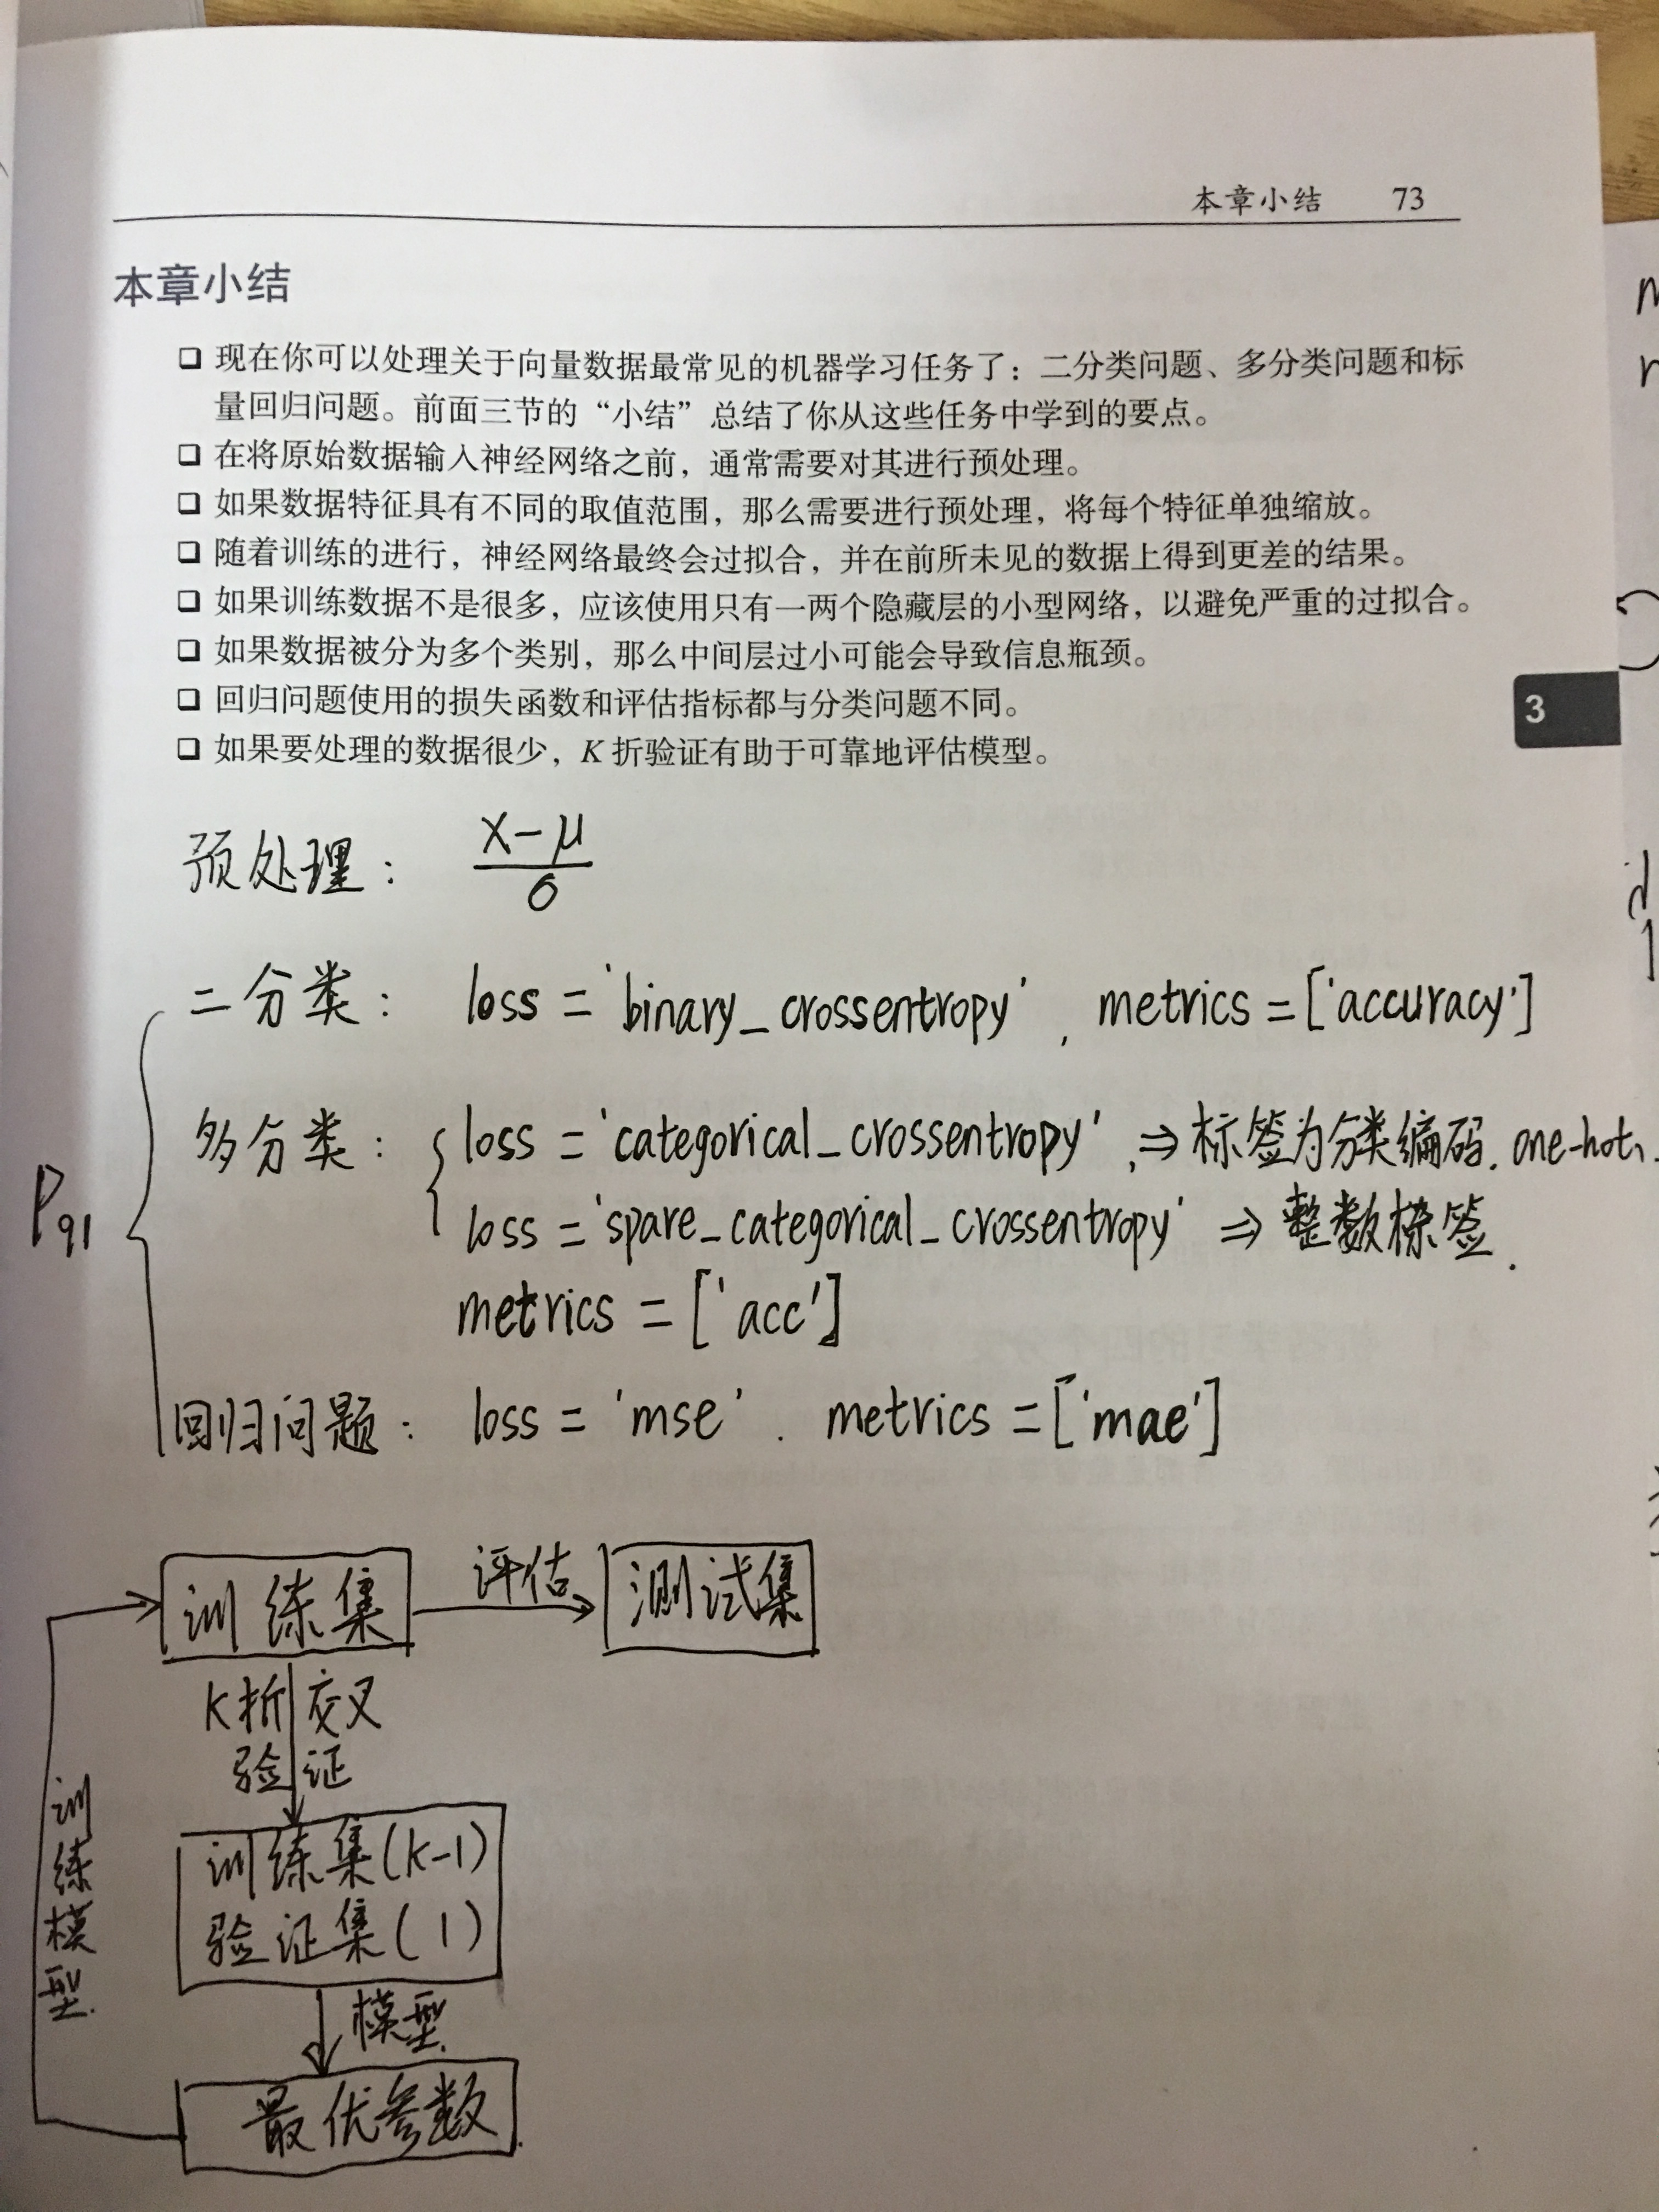 本章小结 73
本章小结
❑ 现在你可以处理关于向量数据最常见的机器学习任务了：二分类问题、多分类问题和标
量回归问题。前面三节的“小结”总结了你从这些任务中学到的要点。
❑ 在将原始数据输入神经网络之前，通常需要对其进行预处理。
❑ 如果数据特征具有不同的取值范围，那么需要进行预处理，将每个特征单独缩放。
❑ 随着训练的进行，神经网络最终会过拟合，并在前所未见的数据上得到更差的结果。
❑ 如果训练数据不是很多，应该使用只有一两个隐藏层的小型网络，以避免严重的过拟合。
❑ 如果数据被分为多个类别，那么中间层过小可能会导致信息瓶颈。
❑ 回归问题使用的损失函数和评估指标都与分类问题不同。
❑ 如果要处理的数据很少，K 折验证有助于可靠地评估模型。
3
预处理： x-μ
σ
二分类： loss = 'binary_crossentropy' , metrics = ['accuracy']
多分类： loss = 'categorical_crossentropy' , ⇒ 标签为分类编码. one-hot.
P91
loss = 'spare_categorical_crossentropy' ⇒ 整数标签.
metrics = ['acc']
回归问题： loss = 'mse' . metrics = ['mae']
训练集 评估 测试集
K折交叉
验证
训练集(k-1)
验证集(1)
训练模型.
模型.
最优参数